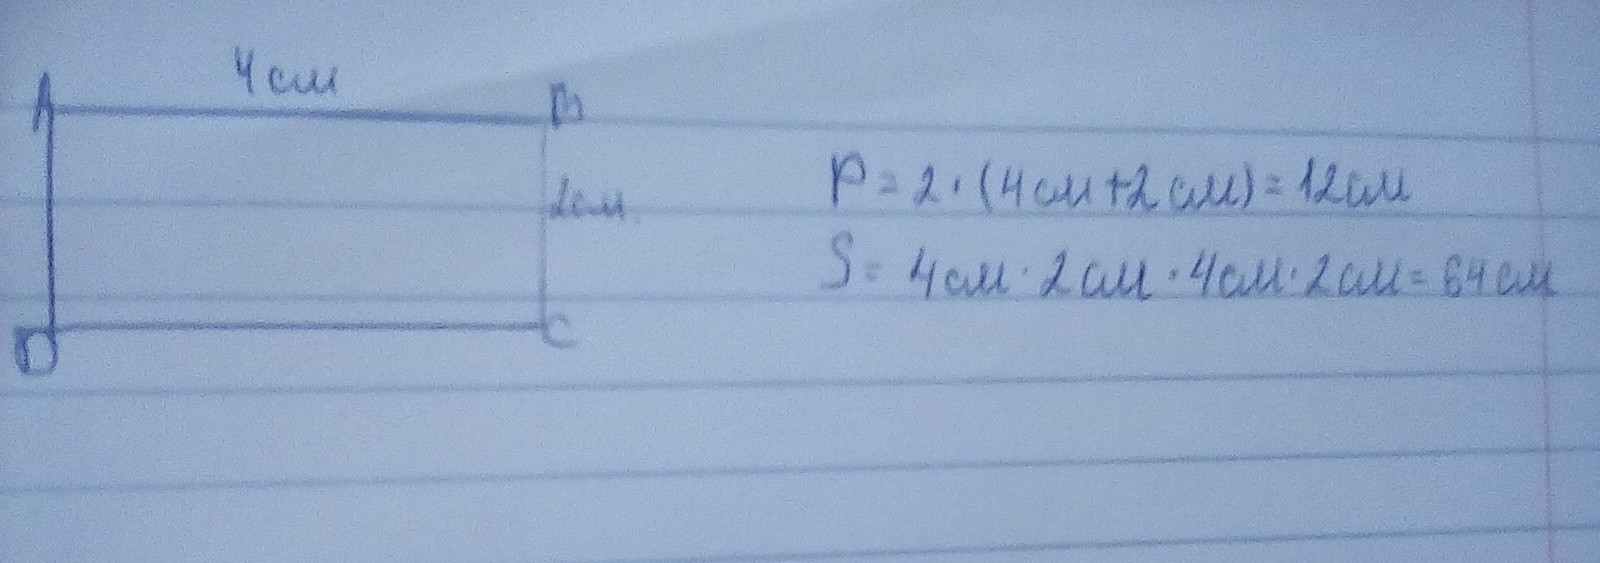 4 см
A B
2см
P = 2 · (4 см + 2 см) = 12 см
S = 4 см · 2 см · 4 см · 2 см = 64 см
D C